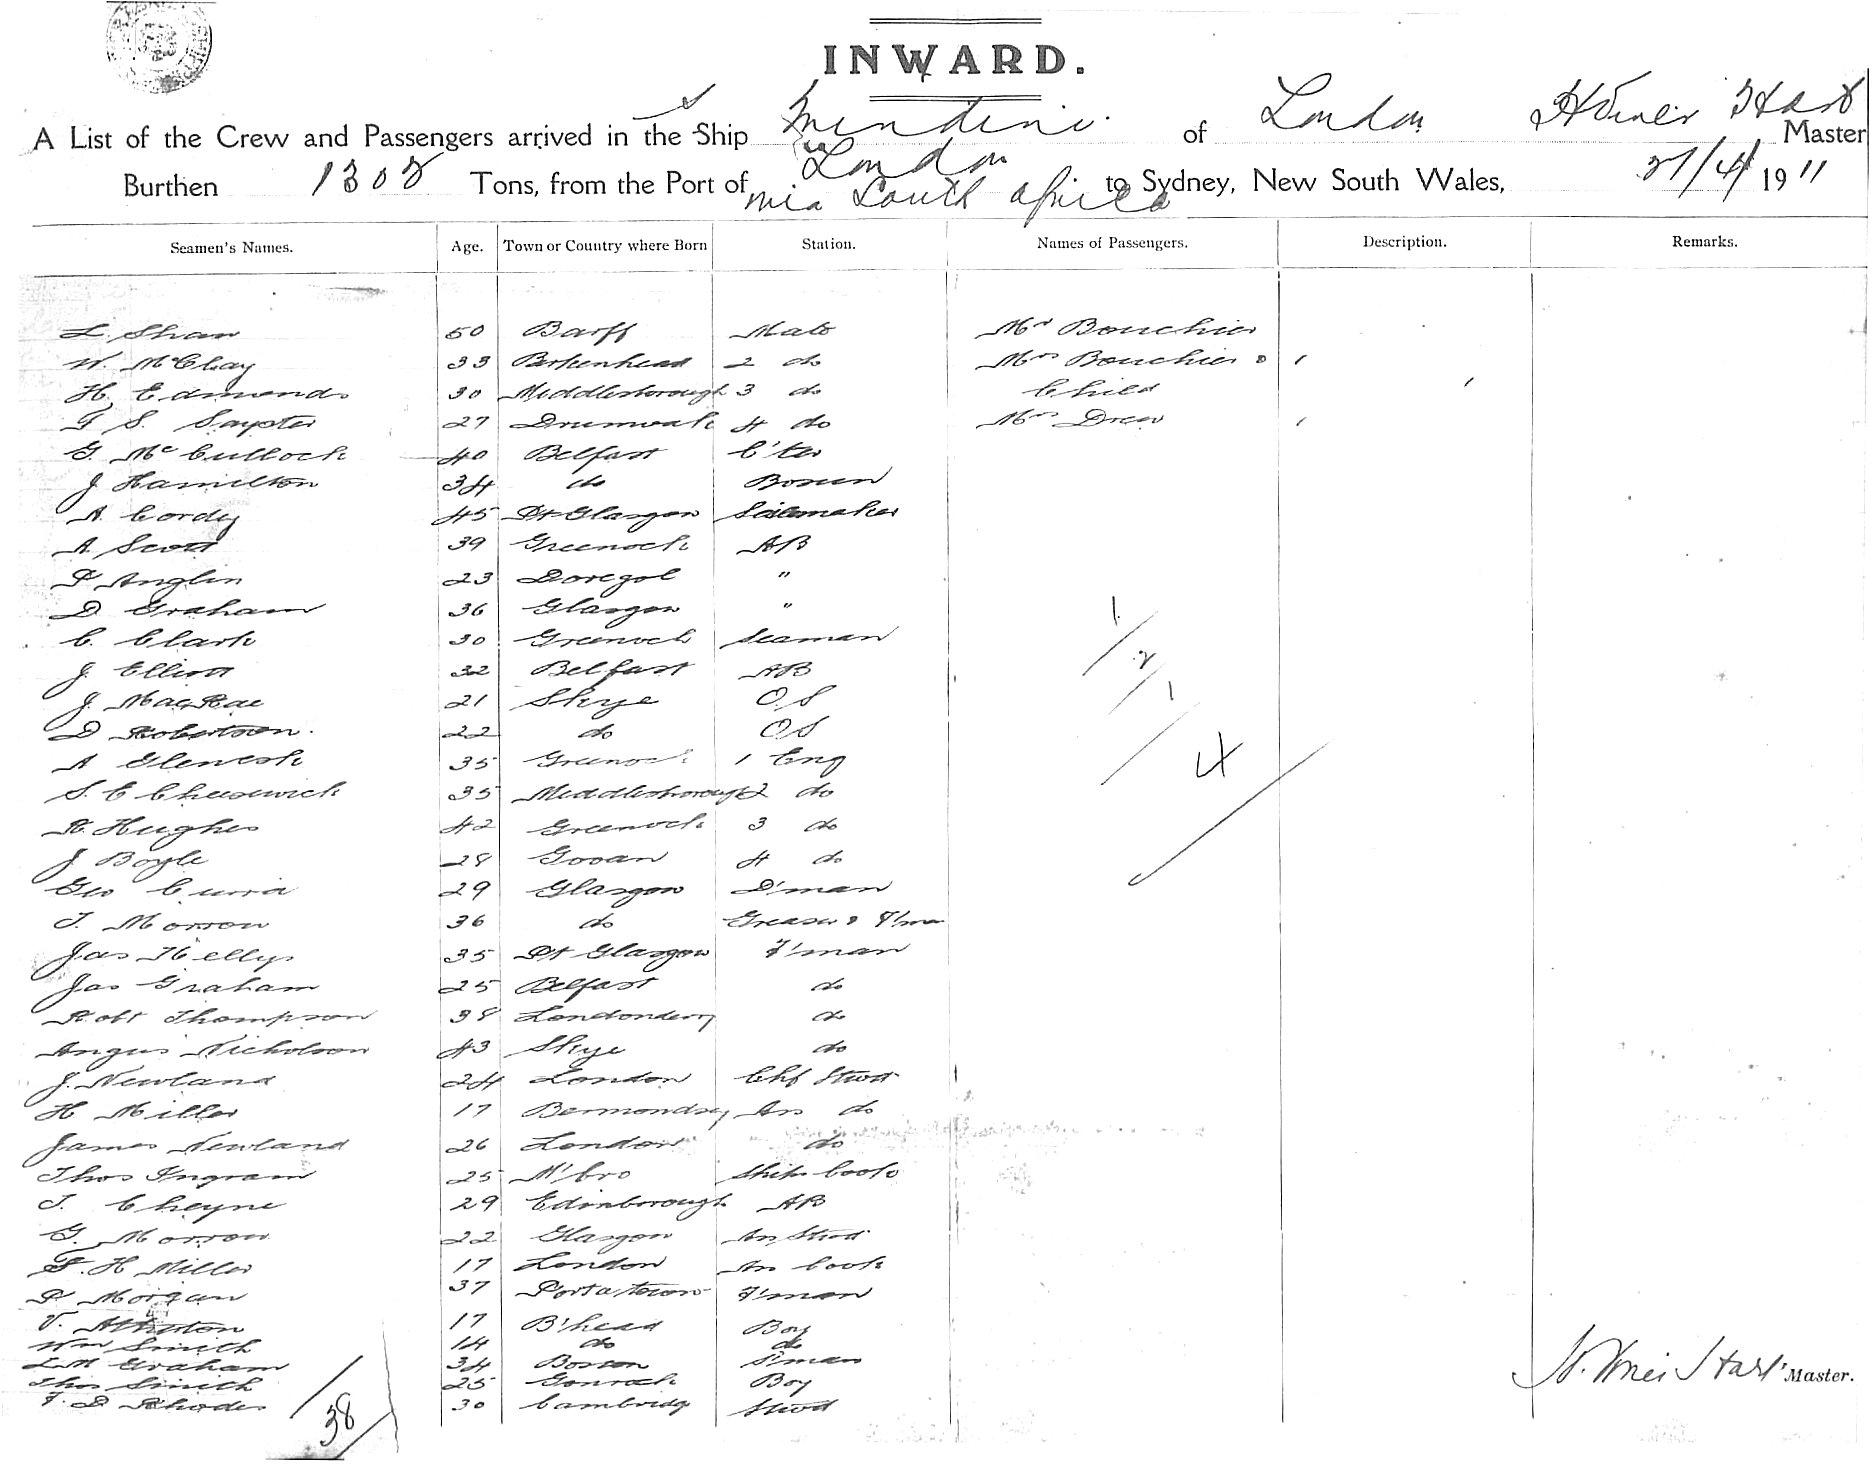 INWARD.
A List of the Crew and Passengers arrived in the S Ship of London Master
Burthen 1308 Tons, from the Port of London via South Africa to Sydney, New South Wales, 21/4/1911
Seamen's Names. Age. Town or Country where Born Station. Names of Passengers. Description. Remarks.
L. Shaw 50 Barff Mate Mr Bouchier
W. McClay 33 Birkenhead 2 do Mrs Bouchier &
H. Edmonds 30 Middlesborough 3 do Child
S. 27 4 do Mrs Drew
G. McCullock 40 Belfast C'ter
J Hamilton 34 do Bosun
A Cordy 45 Pt Glasgow Sailmaker
A Scott 39 Greenock AB
P Anglin 23 Donegol "
D Graham 36 Glasgow "
C. Clark 30 Greenock Seaman
J Elliott 32 Belfast AB
J. MacRae 21 Skye OS
D Robertson. 22 do OS
A 35 Greenock 1 Eng
S. E 35 Middlesborough 2 do
R Hughes 42 Greenock 3 do
J Boyle 28 Govan 4 do
Geo Currie 29 Glasgow D'man
T. Morrow 36 do Greaser & F'man
Jas Kellys 35 Pt Glasgow F'man
Jas Graham 25 Belfast do
Robt Thompson 38 Londonderry do
Angus Nicholson 43 Skye do
J. Newland 24 London Chf Stwd
H Miller 17 Bermondsey As do
James Newland 26 London do
Thos Ingram 25 M'bro Ships Cook
T. Cheyne 29 Edinborough AB
G. Morrow 22 Glasgow As Stwd
F. H Miller 17 London As Cook
P Morgan 37 Portatown F'man
V. 17 B'head Boy
Wm Smith 14 do do
L M Graham 34 Boston F'man
Thos Smith 25 Gourock Boy
F. D Rhodes 30 Cambridg Stwd
1
2
1
4
38
Master.